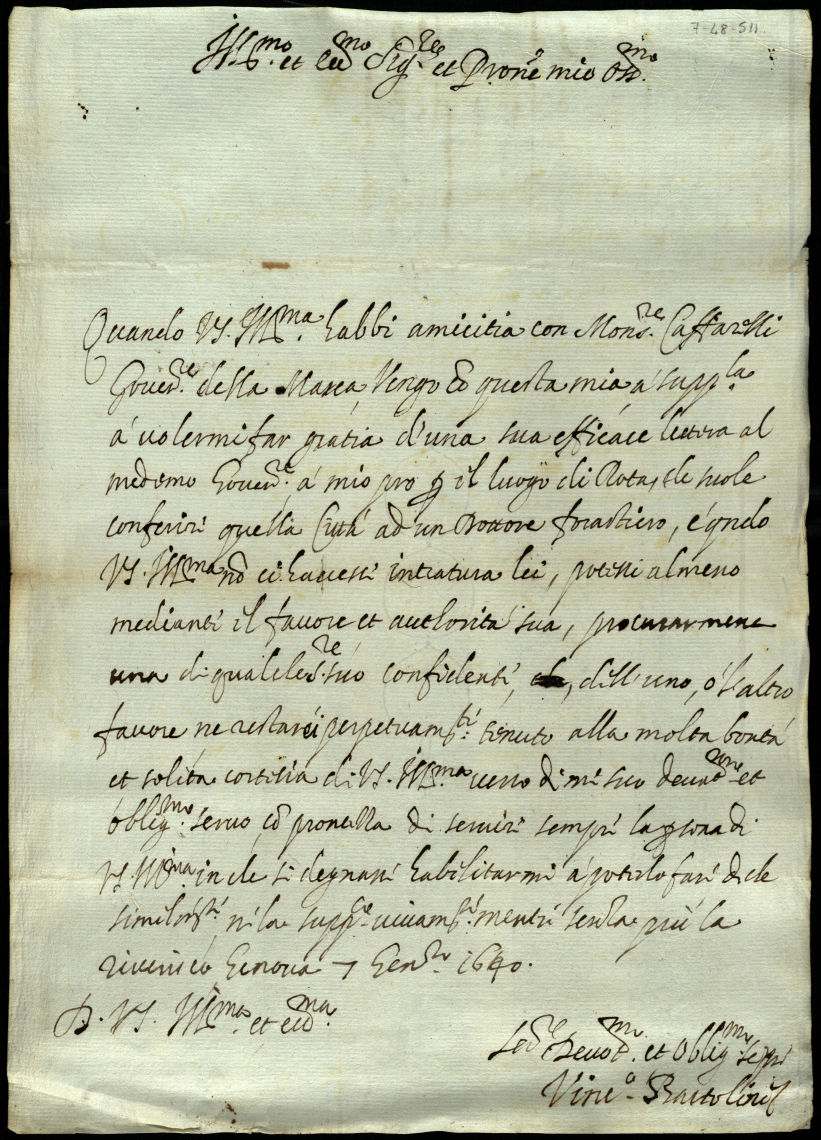 7-48-511
Ill.mo et Ecc.mo Sig.re et Prone mio Oss.mo
Quando VS. Ill.ma habbi amicitia con Mons.re Caffarelli
Gover.re della Marca, Vengo cō questa mia à supp.la
à volermi far gratia d'una sua efficace lettera al
medemo Gover.re à mio pro p il luogo di Rota, che suole
conferirsi quella Città ad un Dottore forastiero, e qndo
VS. Ill.ma nō ci havessi intratura lei, potessi almeno
medianti il favore et authorità sua, procurarmene
una di qualche S.re suo confidenti, che, dell'uno, ò l'altro
favore ne restarei perpetuam.ti tenuto alla molta bontà
et solita cortesia di VS. Ill.ma verso di mi suo devot.mo et
oblig.mo servo cō promessa di servirsi sempri la psona di
VS. Ill.ma in che si degnassi habilitarmi à poterlo fari di che
ne la supp.co vivam.ti mentri senza più la
riverisco Genova 7 Gen.ro 1640.
D. VS. Ill.ma et ecc.ma
Se.re Devot.mo et Oblig.mo sepri
Vinc.o Bartolini